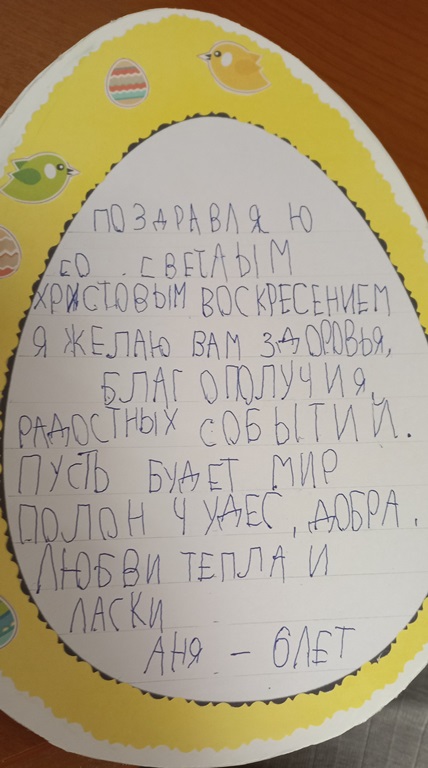 ПОЗДРАВЛЯЮ
СО . СВЕТЛЫМ
ХРИСТОВЫМ ВОСКРЕСЕНИЕМ
Я ЖЕЛАЮ ВАМ ЗДОРОВЬЯ,
БЛАГОПОЛУЧИЯ,
РАДОСТНЫХ СОБЫТИЙ.
ПУСТЬ БУДЕТ МИР
ПОЛОН ЧУДЕС, ДОБРА,
ЛЮБВИ ТЕПЛА И
ЛАСКИ
АНЯ – 6 ЛЕТ